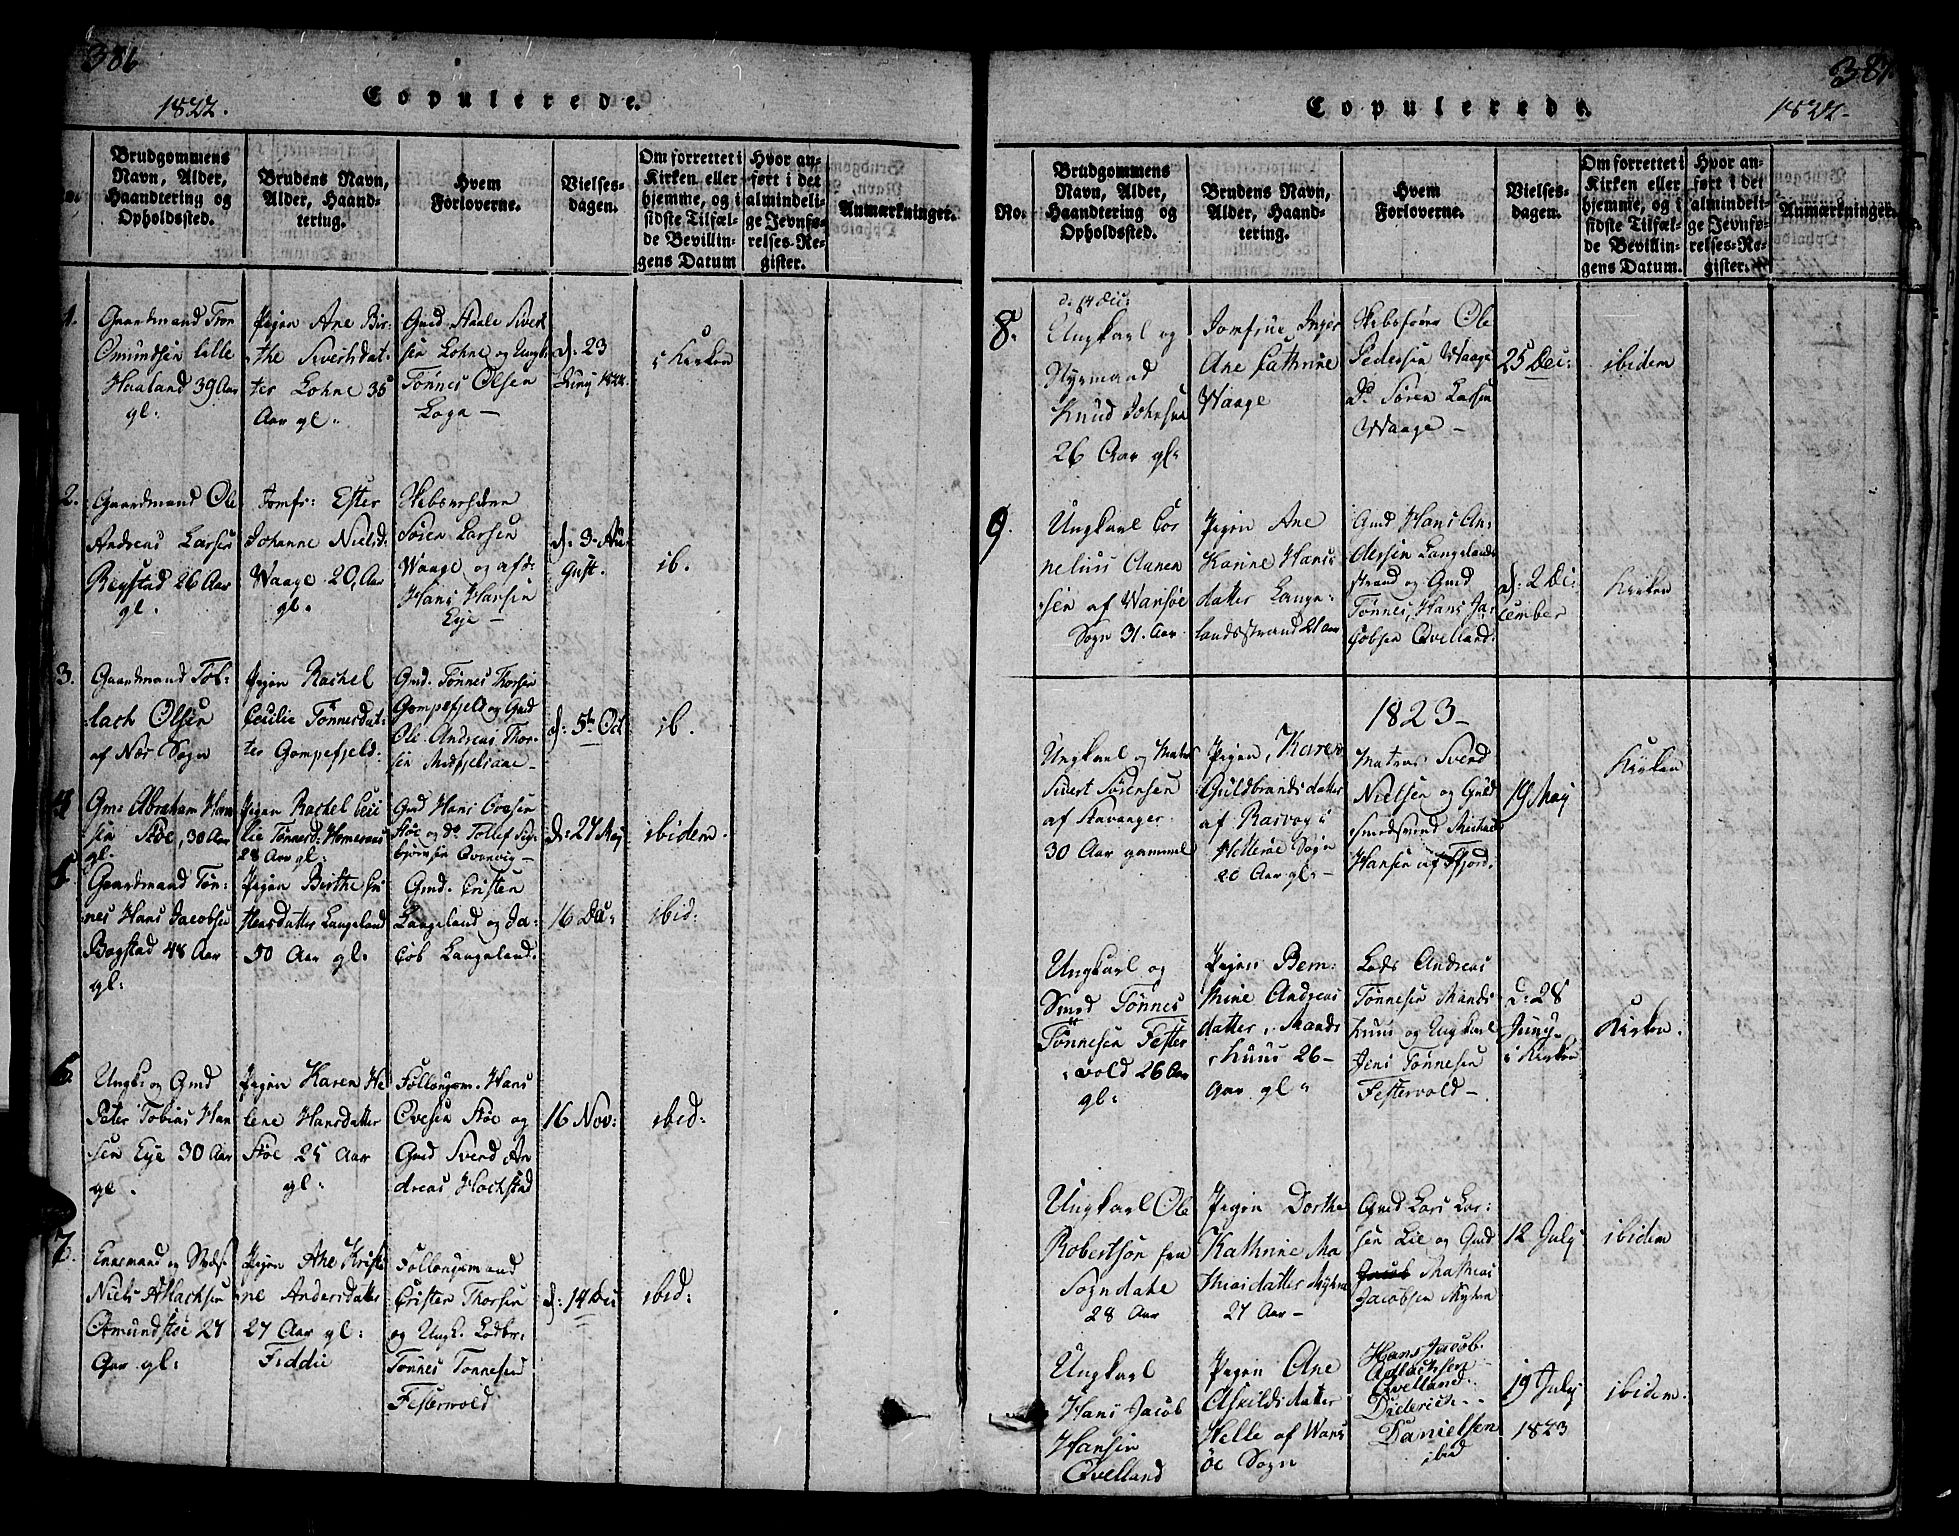 386
1822.
Copulerede.
Brudgommens Navn, Alder, Haandtering og Opholdssted.
Brudens Navn, Alder, Haandtering.
Hvem Forloverne.
Vielsesdagen.
Om forrettet i Kirken eller hjemme, og i sidste Tilfælde Bevillingens Datum
Hvor anført i det almindelige Jevnførelses-Register.
Anmærkninger.
1.
Gaardmand
Omundsen lille
Haaland 39 Aar
gl:
Pigen Ane Bir-
the Sivertsdat-
ter Lohne 35
Aar gl.
Gmd Staale Siver
sen Lohne og Ungk
Tönnes Olsen
Loga –
d. 23
Juny 1822.
i Kirken
2.
Gaardmand Ole
Andreas Larsen
Regstad 26 Aar
gl.
Jomfr: Ester
Johanne Nielsd.
Waage 20, Aar
gl.
Sören Larsen
Waage og afd:
Hans Hansen
Eye –
d. 3. Au-
gust.
ib.
3.
Gaardmand Tol-
lach Olsen
af Nær Sogn
Pigen Rachel
Cecilie Tönnesdat-
ter Gompefjeld.
Gmd. Tönnes Thorsen
Gompefjeld og Gmd
Ole Andreas Thor-
sen
d. 5te Oct
ib.
4
Gm: Abraham Han
sen Stöe, 30 Aar
gl.
Pigen Rachel Ceci
lie Tönnesd:
28 Aar gl:
Gmd Hans Ovesen
Stöe og do Tollef Sig-
björnsen
d: 27 May
ibidem.
5.
Gaardmand Tön-
nes Hans Jacobsen
Bogstad 48 Aar
gl:
Pigen Birthe Cri
stensdatter Langeland
50 Aar gl:
Gmd. Cristen
Langeland og Ja-
cob Langeland.
16
ibid:
6.
Ungk: og Gmd
Peter Tobias Han
sen Eye 30 Aar
gl.
Pigen Karen He
lene Hansdatter
Stöe 25 Aar
gl.
Follougsm. Hans
Ovesen Stöe og
Gmd Sverd An
dreas Hochstad
16 Nov:
ibid:
7.
Enkemand og
Niels Atlachsen
Omundstöe 27
Aar gl:
Pigen Ane Kristi
ne Andersdatter
27 Aar gl:
Fedde
Follougsmand
Crister Thorsen
og Ungk. Lodbr:
Tönnes Tonnesend
Festervold
d: 14 Dec
ibid:
387
Copulerede.
1822
No:
Brudgommens Navn, Alder, Haandtering og Opholdssted.
Brudens Navn, Alder, Haandtering.
Hvem Forloverne.
Vielsesdagen.
Om forrettet i Kirken eller hjemme, og i sidste Tilfælde Bevillingens Datum.
Hvor anført i det almindelige Jevnførelses-Register.
Anmærkninger.
8.
d. 14 Dec:
Ungkarl og
Styrmand
Knud Johnsen
26 Aar gl:
Jomfrue Inger
Ane Cathrine
Waage
Skibsförer Ole
Pedersen Waage
Do Sören Larsen
Waage –
25 Dec:
ibidem
9.
Ungkarl Cor
nelius Aanen
sen af Wansöe
Sogn 31. Aar
Pigen Ane
Karine Hans
datter Lange-
landsstrand 21 Aar
Gmd Hans An-
dersen Langelands
strand og Gmd
Tönnes, Hans Ja-
cobsen Qvelland.
d. 2 De-
cember
Kirken
1823 –
Ungkarl og Matros
Sivert Sörensen
af Stavanger.
30 Aar gammel
Pigen, Karen
Guldbrandsdatter
af Rasvog i
Hitteröe Sogn
20 Aar gl: –
Matros Sverd
Nielsen og Guld
smedsvend Michael
Hansen af Fjord.
19 May
Kirken
Ungkarl og
Smed Tönnes
Tönnesen Fester
vold 26 Aar
gl:
Pigen Bem-
thine Andreas
datter, Mands
huus 26 –
Aar gl.
Lods Andreas
Tönnesen Mands
huus og Ungkarl
Jens Tönnesen
Festervold –
d: 28
Juny
i Kirken
Kirken.
Ungkarl Ole
Robertson fra
Sogndahl
28 Aar
Pigen Dorthe
Kathrine Ma
thias datter Myhra
27 Aar –
Gmd Lars Lar-
sen Lie og Gmd
Jacob Mathias
Jacobsen Myhra
12 July
ibidem
Ungkarl
Hans Jacob
Hansen
Qvelland
Pigen Ane
Askildsdatter
Helle af Wans
öe Sogn
Hans Jacob
Adlachsen
Qvelland.
Diderich
Danielsen
ibid
19 July
1823
ibidem.